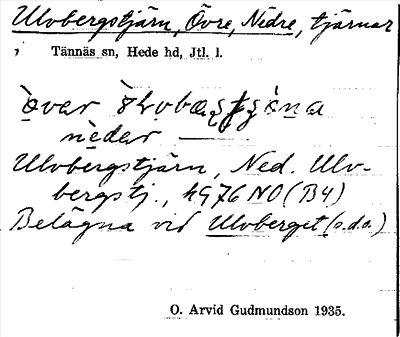 Ulvbergstjärn, Övre, Nedre, tjärnar
, Tännäs sn, Hede hd, Jtl. l.
òvar
nèdar ———
Ulvbergstjärn, Ned. Ulv-
bergstj., hg 76 NO (B4)
Belägna vid Ulvberget (s.d.o.)
O. Arvid Gudmundson 1935.